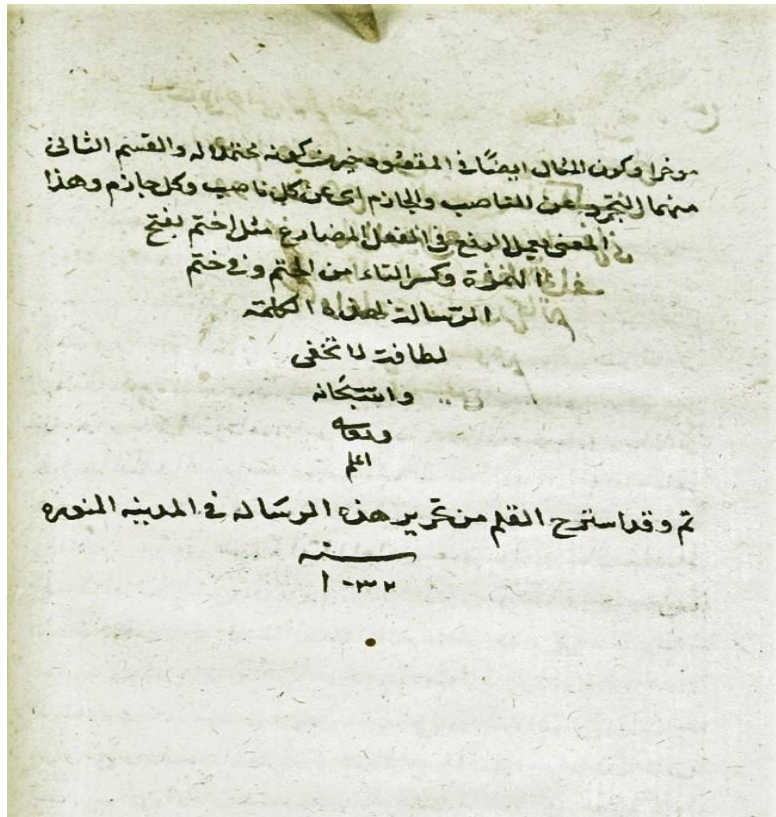 موخرا وكون المثال ايضًا في المقصود خيرت كونه محتملا له والقسم الثاني
منهما التجرد عن الناصب والجازم اى عن كل ناصب وكل جازم وهذا
المعنى يعمل الرفع في الفعل المضارع مثل اختم بفتح
الهمزة وكسر التاء من الختم وفي ختم
الرسالة بهذه الكلمة
لطافة لا تخفى
والله سبحانه
وتعالى
اعلم
تم وقد استرح القلم من تحرير هذه الرساله في المدينه المنوره
سنه
١٠٣٢